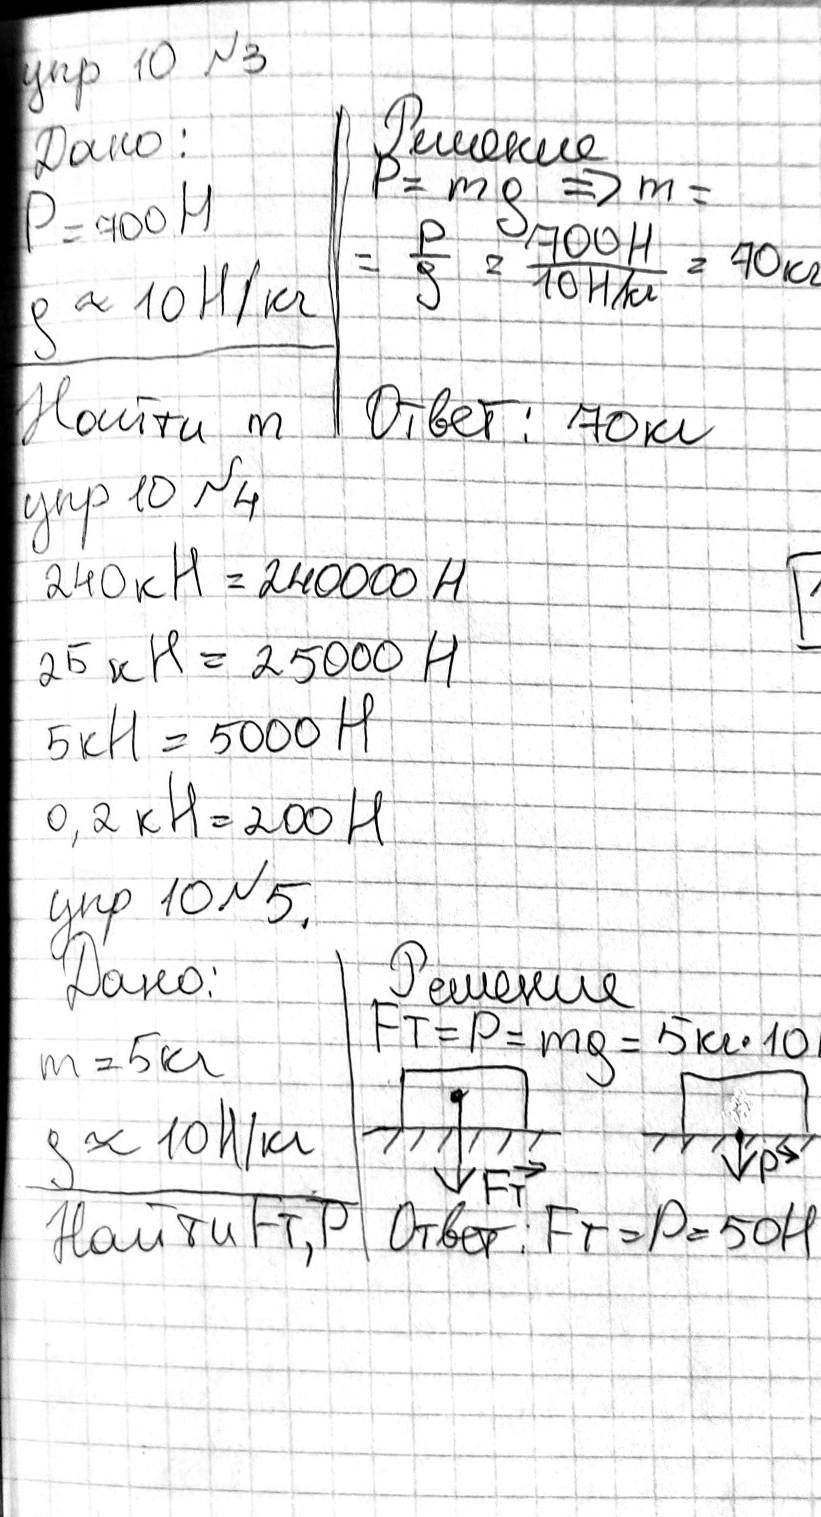 упр 10 №3
Дано:
P=700Н
g≈10Н/кг
Найти m
Решение
P=mg => m=
= P/g = 700Н/10Н/кг = 70кг
Ответ: 70кг
упр 10 №4
240кН=240000Н
25кН=25000Н
5кН=5000Н
0,2кН=200Н
упр 10№5.
Дано:
m=5кг
g≈10Н/кг
Найти Fт, P
Решение
Fт=P=mg=5кг·10
Fт
P
Ответ: Fт=P=50Н